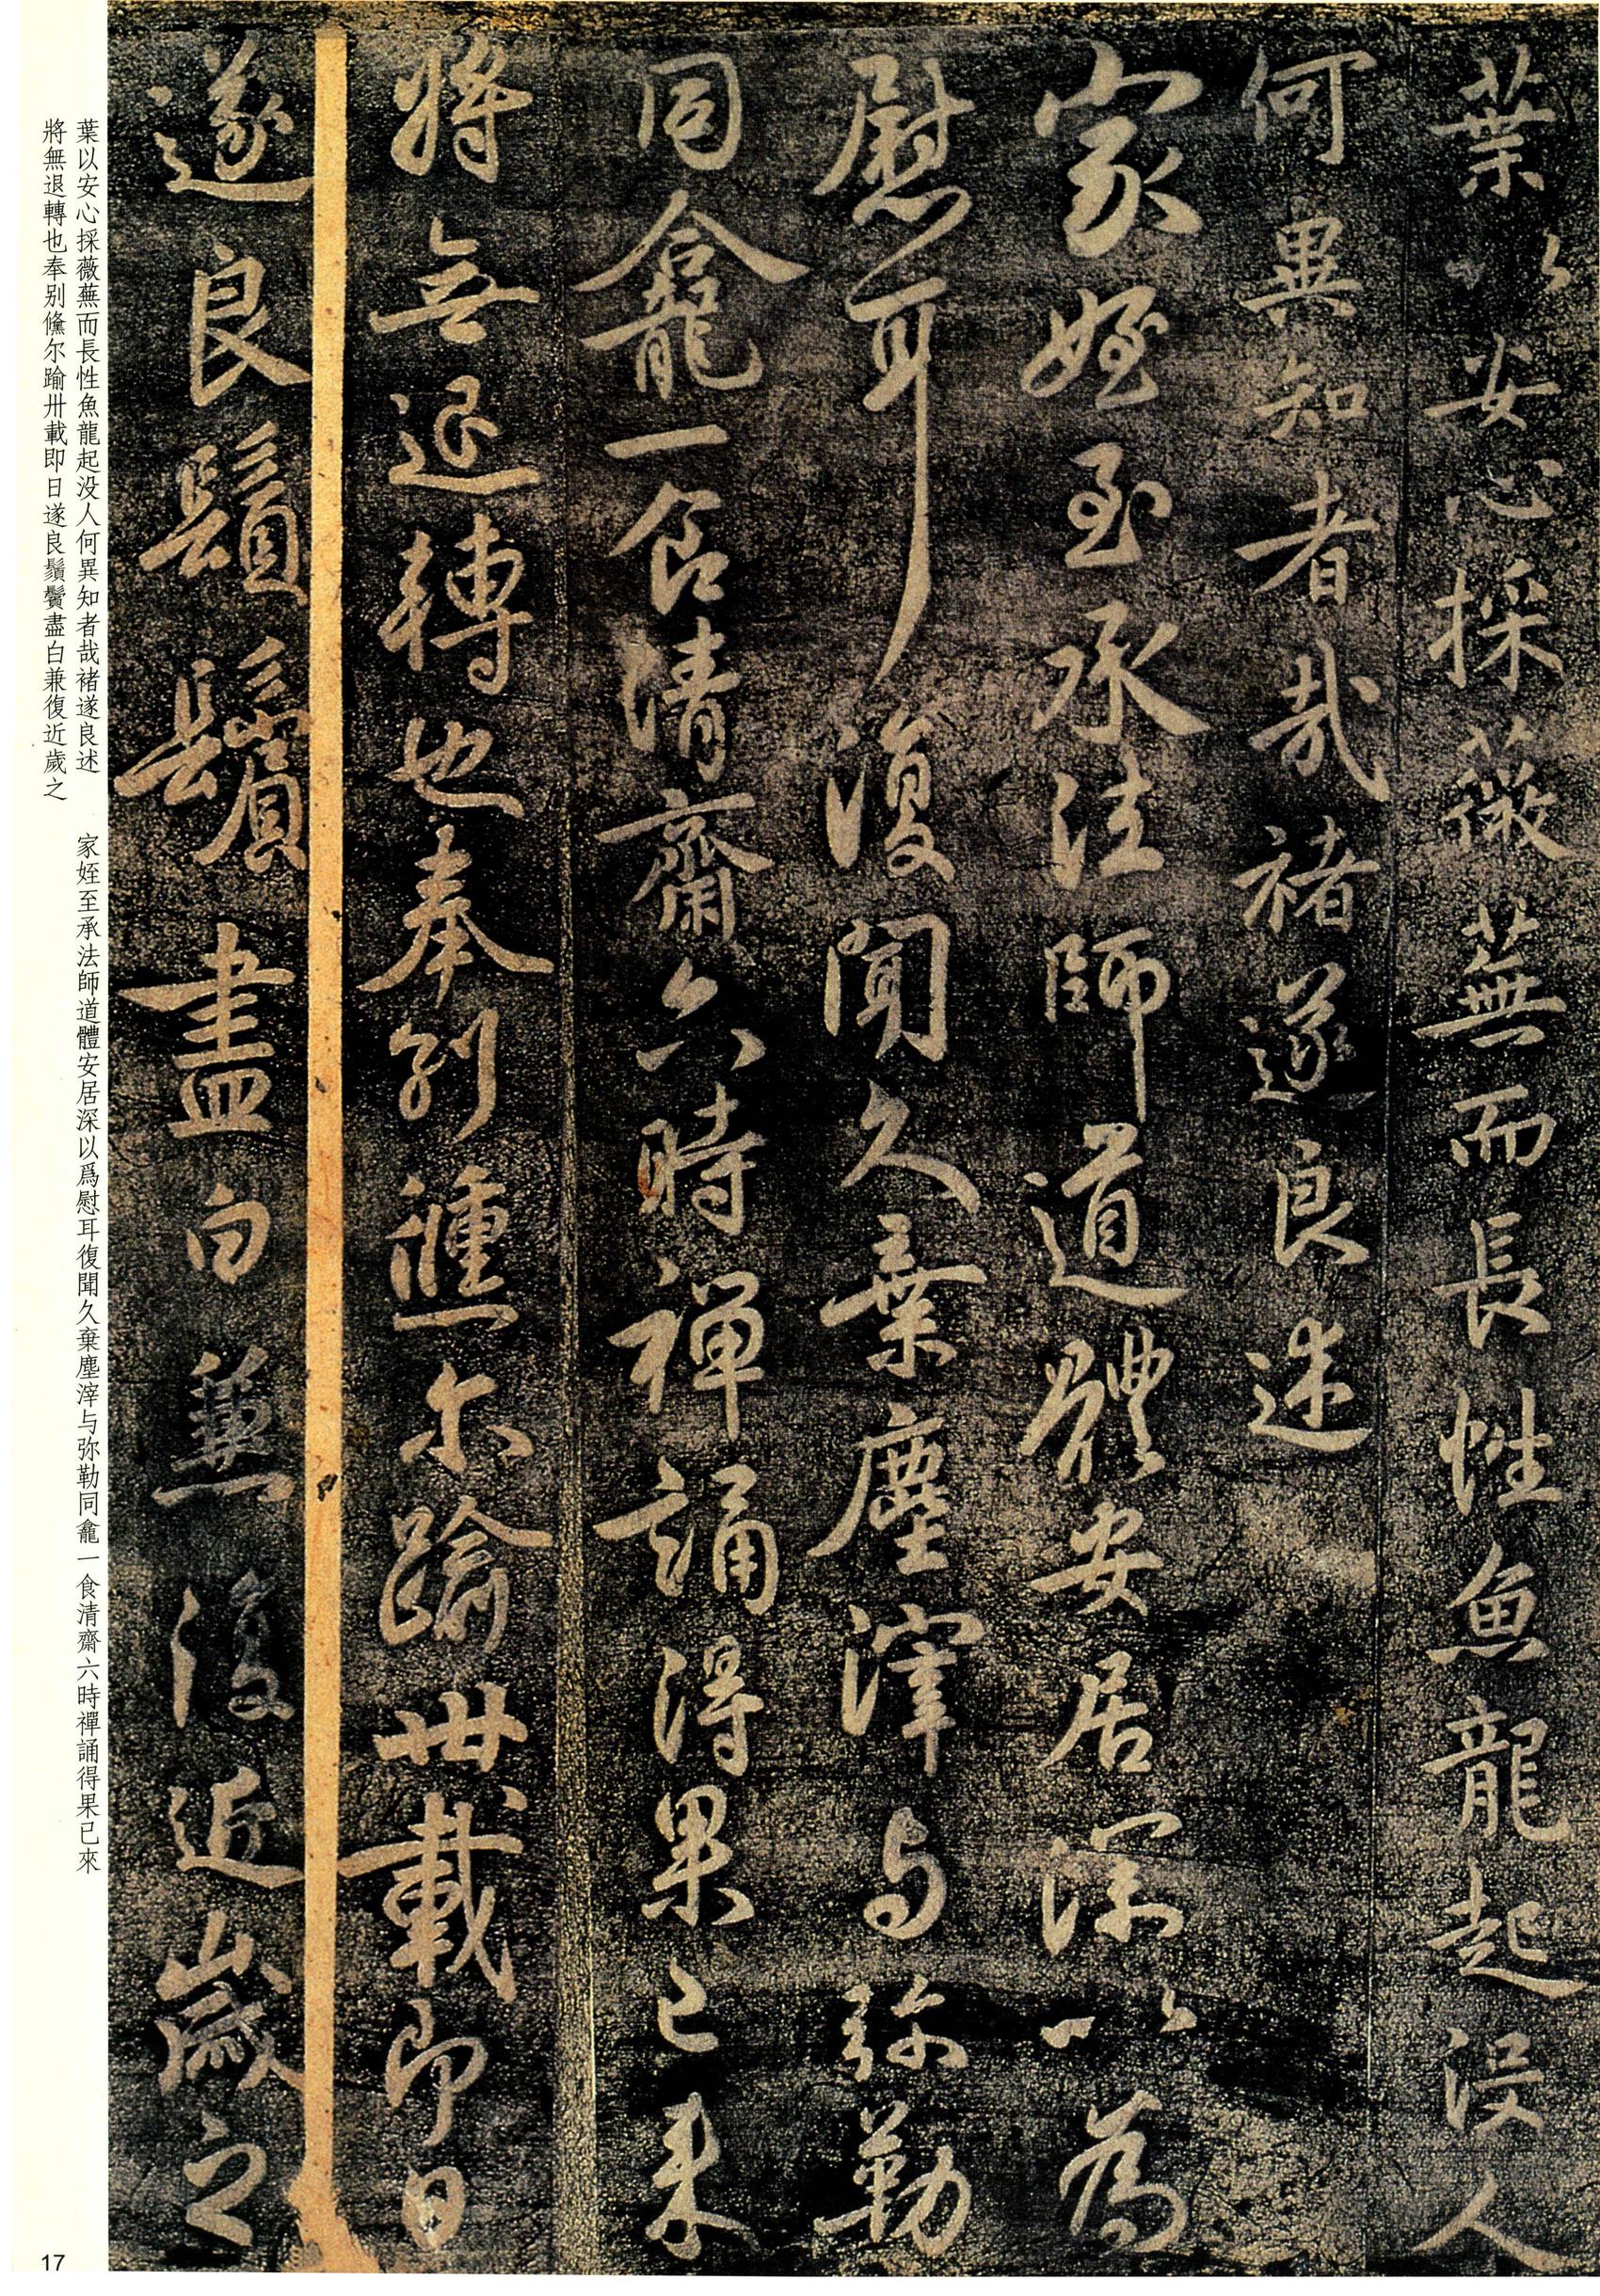 葉以安心採薇蕪而長性魚龍起没人
何異知者哉褚遂良述
家姪至承法師道體安居深以為
慰耳復聞久棄塵滓与弥勒
同龕一食清齋六時禪誦得果已来
將無退轉也奉别儵尒踰卅載即日
遂良鬚鬢盡白兼復近歲之
葉以安心採薇蕪而長性魚龍起没人何異知者哉褚遂良述
家姪至承法師道體安居深以爲慰耳復聞久棄塵滓与弥勒同龕一食清齋六時禪誦得果已來
將無退轉也奉别儵尔踰卅載即日遂良鬚鬢盡白兼復近歲之
17